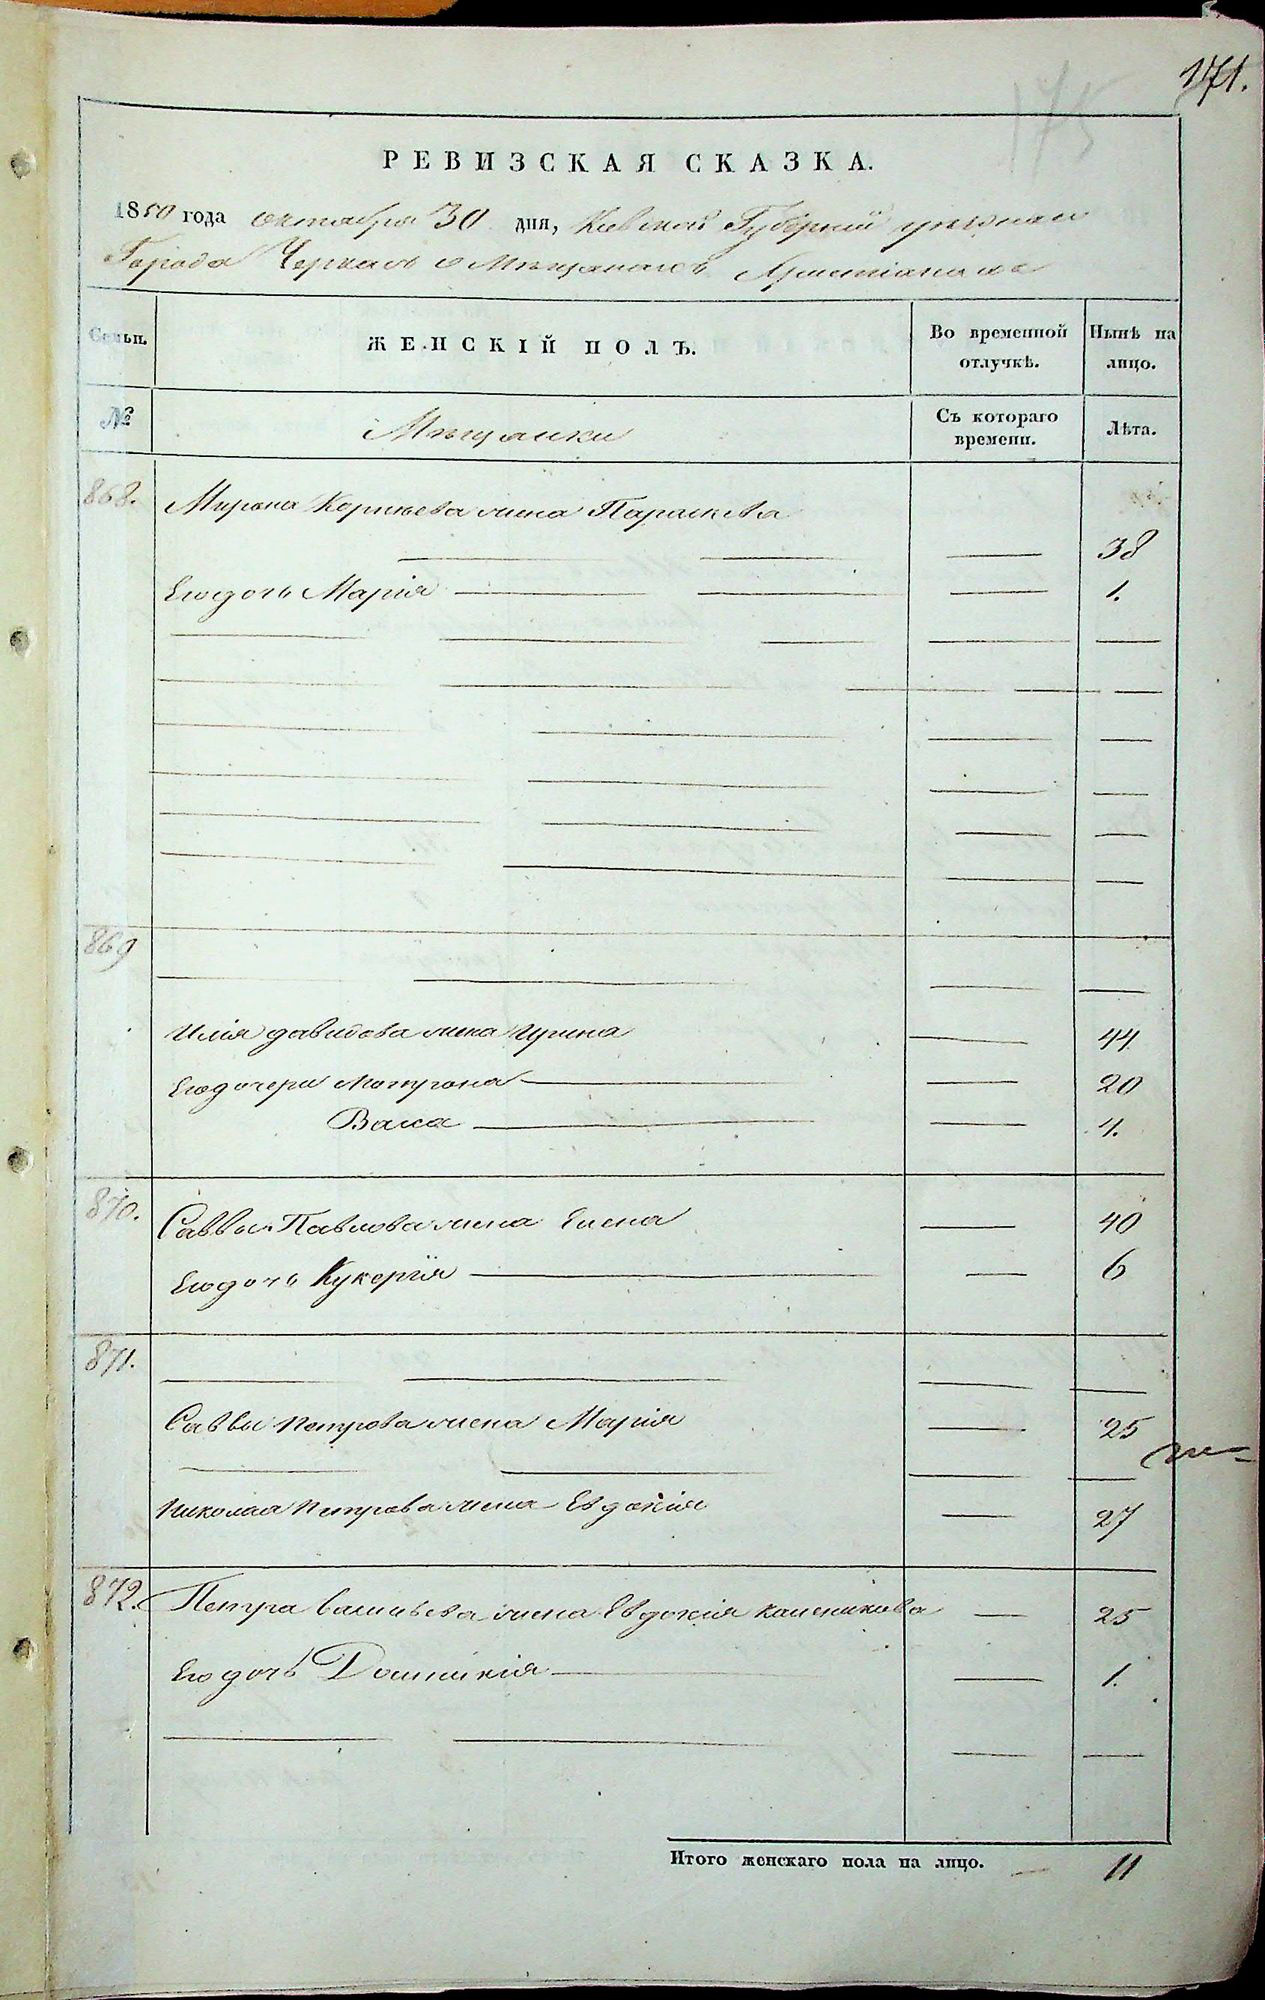 171.
175
РЕВИЗСКАЯ СКАЗКА.
1850 года октября 30 дня, Киевской Губерніи уѣзднаго
Города Черкасъ о Мѣщанахъ Христіанахъ
Семьи. ЖЕНСКІЙ ПОЛЪ. Во временной отлучкѣ. Нынѣ на лицо.
№ Мѣщанки Съ котораго времени. Лѣта.
868. Мирона Корнѣева жена Параскева
38
Его дочь Марія 1.
869
Илія Давидова жена Ирина 44
Его дочери Мотрона 20
Васса 4.
870. Саввы Павлова жена Елена 40
Его дочь Кукерія 6
871.
Саввы Петрова жена Марія 25
Николая Петрова жена Евдокія 27
872. Петра Васильева жена Евдокія Каленикова 25
Его дочь Домникія 1.
Итого женскаго пола на лицо. 11